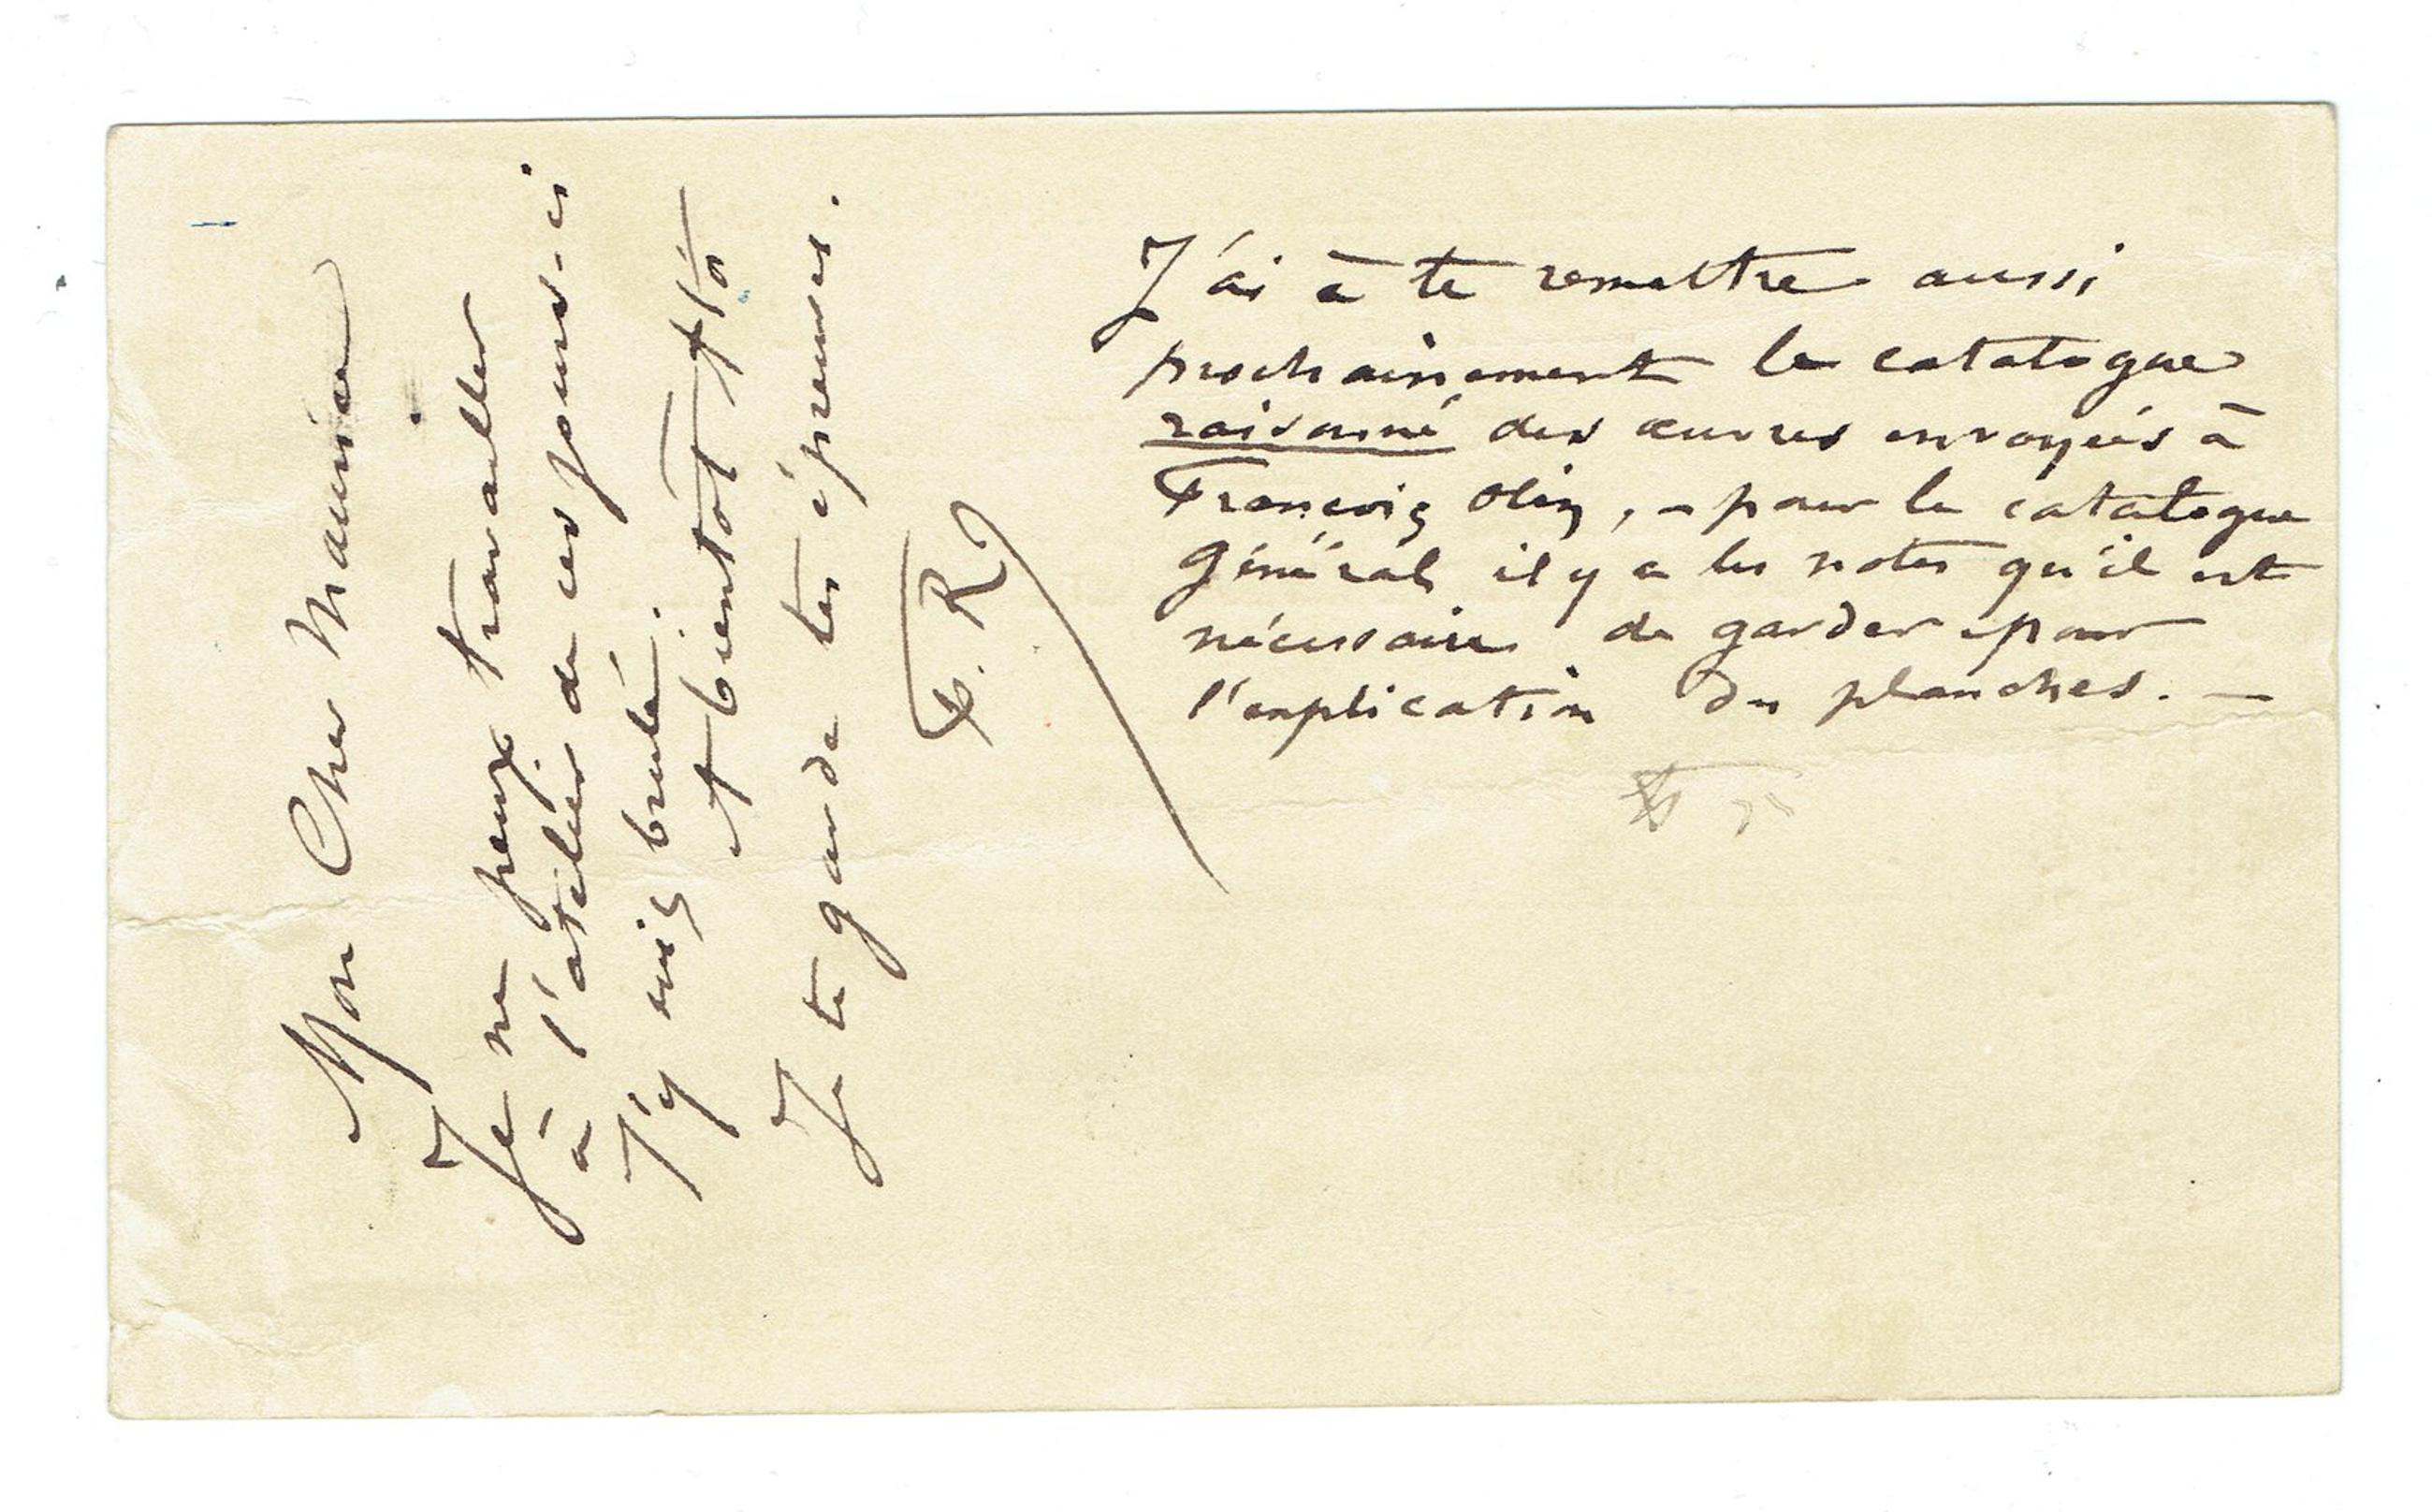 Mon Cher Maurice
Je ne peux travailler
à l'atelier de ces jours-ci
J'y suis brulé.
A bientôt
Je te garde tes épreuves.
F. R.
J'ai à te remettre aussi
prochainement le catalogue
raisonné des œuvres envoyées à
François Olin, – pour le catalogue
Général il y a les notes qu'il est
nécessaire de garder pour
l'explication des planches. —